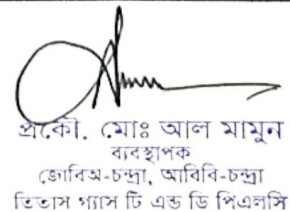 প্রকৌ. মোঃ আল মামুন
ব্যবস্থাপক
জোবিঅ-চন্দ্রা, আবিবি-চন্দ্রা
তিতাস গ্যাস টি এন্ড ডি পিএলসি